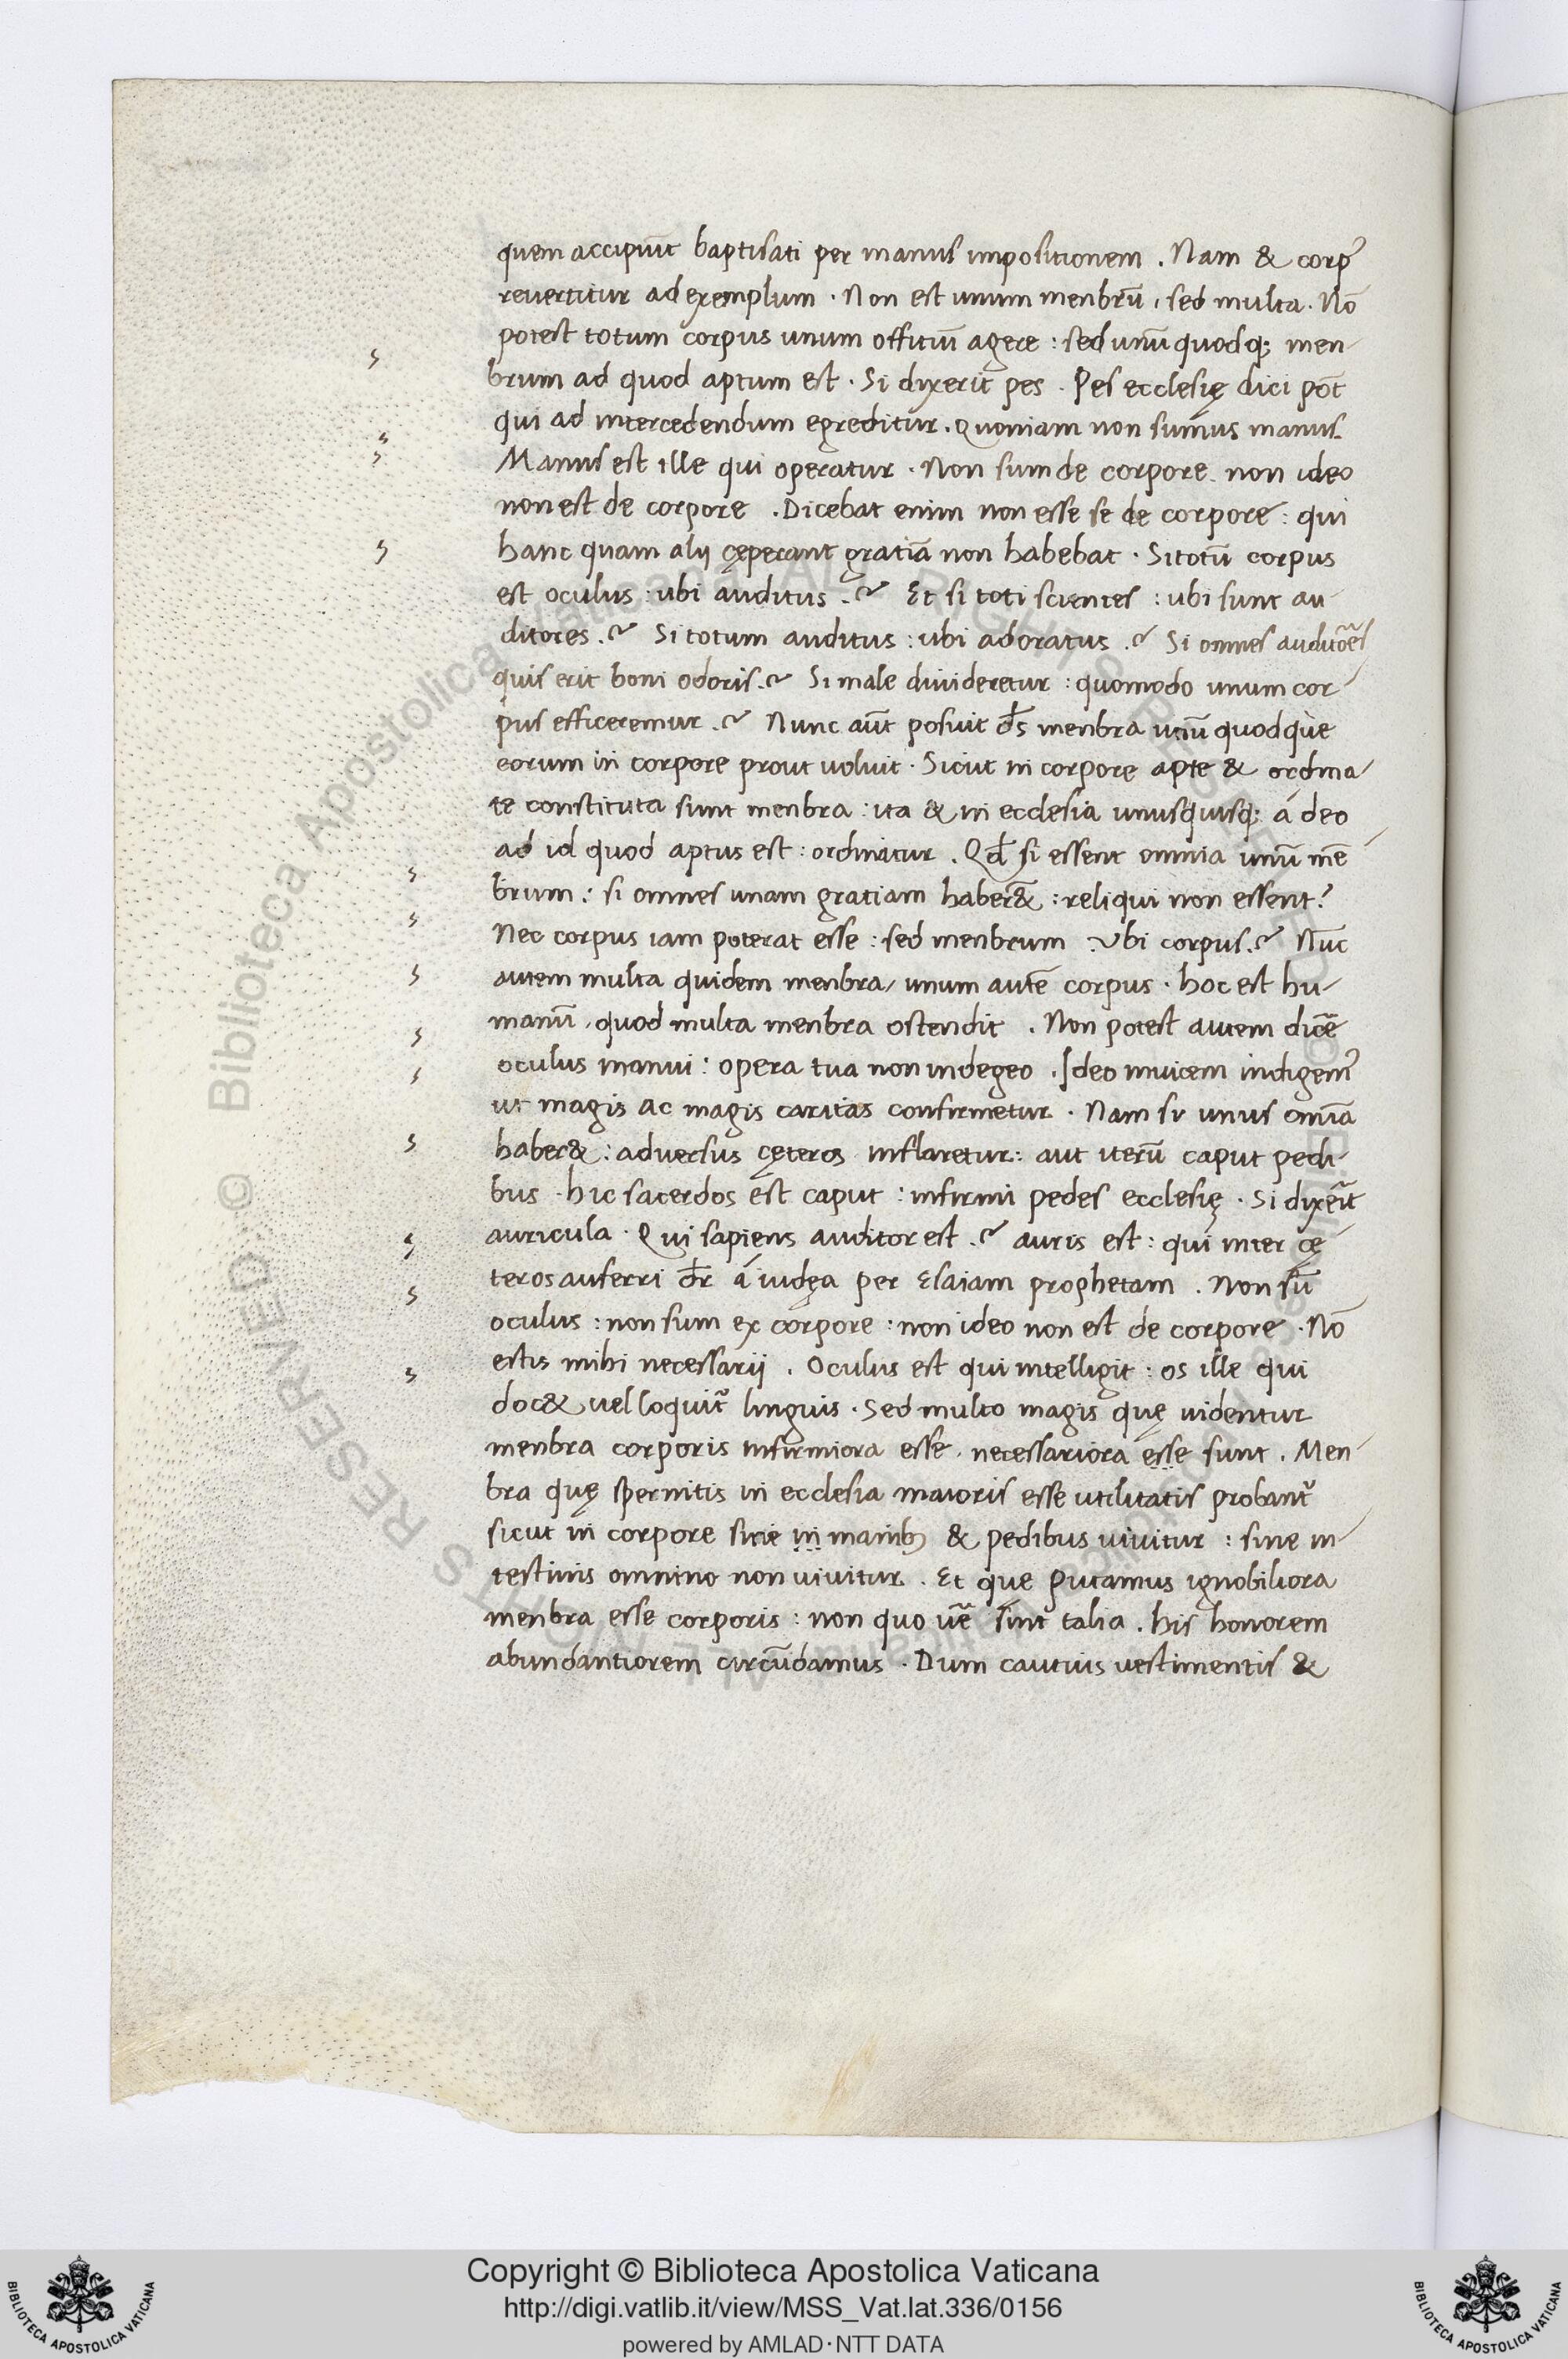 quem accipiũt baptisati per manus impositionem . Nam & corp᾽
revertitur ad exemplum . Non est unum menbrũ , sed multa . Nõ
potest totum corpus unum offitiũ agere : sed unũ quodq; men-
brum ad quod aptum est . Si dixerit pes . Pes ecclesię dici põt
qui ad intercedendum egreditur . Quoniam non sumus manus .
Manus est ille qui operatur . Non sum de corpore . non ideo
non est de corpore . Dicebat enim non esse se de corpore : qui
hanc quam alij cęperant gratiã non habebat . Si totũ corpus
est oculus : ubi auditus .~ Et si toti scientes : ubi sunt au-
ditores .~ Si totum auditus : ubi adoratus .~ Si omnes auditões
quis erit boni odoris .~ Si male divideretur : quomodo unum cor-
pus efficeremur .~ Nunc aũt posuit d̃s menbra unũ quodque
eorum in corpore prout voluit . Sicut in corpore apte & ordina-
te constituta sunt menbra : ita & in ecclesia unusquisq; á deo
ad id quod aptus est : ordinatur . Qd̃ si essent omnia unũ mẽ-
brum : si omnes unam gratiam haber&̃ : reliqui non essent ?
Nec corpus iam poterat esse : sed menbrum . Ubi corpus .~ Nũc
autem multa quidem menbra, unum autẽ corpus . hoc est hu-
manũ , quod multa menbra ostendit . Non potest autem dicẽ
oculus manui : opera tua non indegeo . Ideo invicem indigem᾽
ut magis ac magis caritas confirmetur . Nam si unus omĩa
haber& : adversus cęteros inflaretur : aut iterũ caput pedi-
bus . hic sacerdos est caput : infirmi pedes ecclesię . Si dixẽit
auricula . Qui sapiens auditor est .~ auris est : qui inter cę-
teros auferri dr̃ á iudęa per Esaiam prophetam . Non sũ
oculus : non sum ex corpore : non ideo non est de corpore . Nõ
estis mihi necessarij . Oculus est qui intelligit : os ille qui
doc& vel loquit᾽ linguis . Sed multo magis quę videntur
menbra corporis infirmiora esse . necessariora esse sunt . Men-
bra quę spernitis in ecclesia maioris esse utilitatis probant᾽
sicut in corpore sine in manib; & pedibus vivitur : sine in-
testinis omnino non vivitur . Et que putamus ignobiliora
menbra esse corporis : non quo vẽ sint talia . his honorem
abundantiorem circũdamus . Dum cautius vestimentis &
Copyright © Biblioteca Apostolica Vaticana
http://digi.vatlib.it/view/MSS_Vat.lat.336/0156
powered by AMLAD·NTT DATA